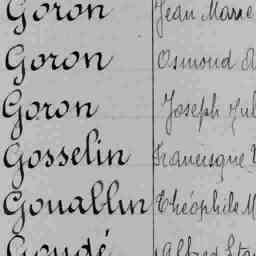 Goron Jean Marie
Goron Osmond
Goron Joseph Jul
Gosselin Francisque
Gouablin Théophile M
Goudé Alfred Sta